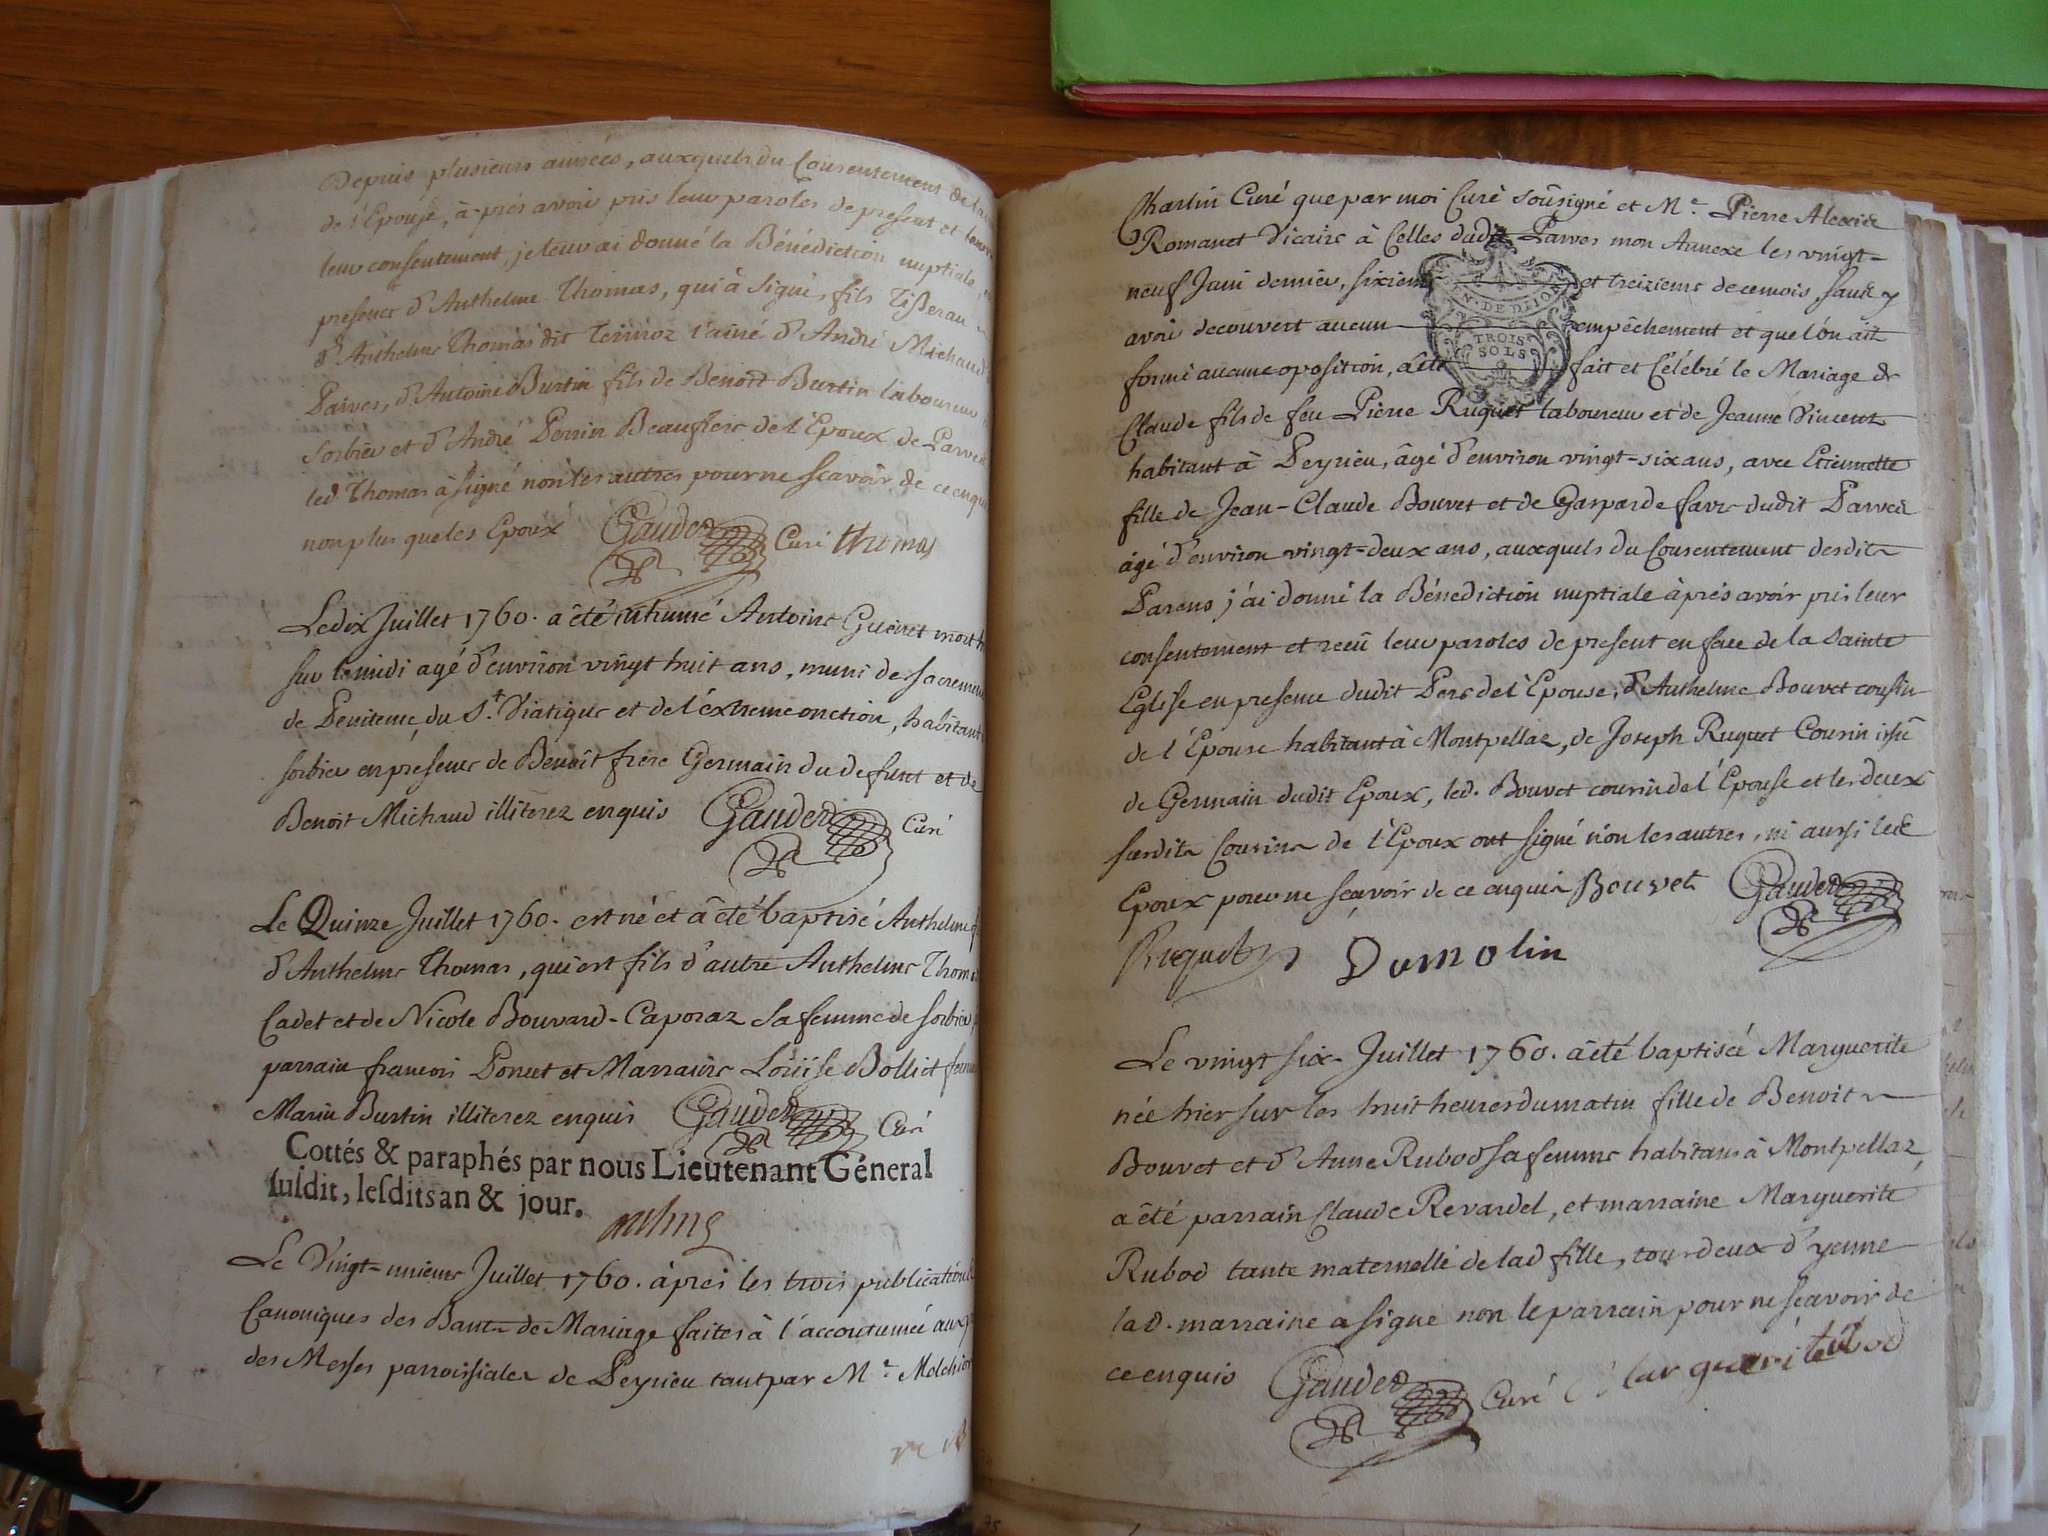 Depuis plusieurs années, auxquels du Consentement
de l'Epouse, à-près avoir pris leur paroles de present et
leur consentement, je leur ai donné la Bénédiction nuptiale,
presence d'Anthelme Thomas, qui à signé, fils Tisseran
d'Anthelme Thomas dit l'ainé d'André Michaud
Parves, d'Antoine Burtin fils de Benoit Burtin laboureur
sorbieu et d'André Perrin Beaufrere de l'Epoux de Parves
led. Thomas à signé non les autres pour ne scavoir de ce enquis
non plus que les Epoux Gauder Curé thomas
Le dix Juillet 1760. a été inhumé Antoine Guenet mort
sur le midi agé d'environ vingt huit ans, muni des sacremens
de Penitence, du St. Viatique et de l'éxtreme onction, habitant
sorbieu en presence de Benoît frere Germain du defunt et de
Benoit Michaud illiterez enquis Gauder Curé
Le Quinze Juillet 1760. est né et â été baptisé Anthelme
d'Anthelme Thomas, qui est fils d'autre Anthelme Thomas
Cadet et de Nicole Bouvard-Caporaz sa femme de sorbieu
parrain francois Poncet et Marraine Loüise Bolliet femme
Marin Burtin illiterez enquis Gauder Curé
Cottés & paraphés par nous Lieutenant Géneral
susdit, lesdits an & jour.
Le Vingt-unieme Juillet 1760. àprès les trois publications
Canoniques des Bans de Mariage faites à l'accoutumée aux
des Messes parroissiales de Peyrieu tant par Mr. Melchior
Chastin Curé que par moi Curé soûsigné et Mr. Pierre Alexis
Romanet Vicaire à Celles dudit Parves mon Annexe les vingt-
neuf Juin dernier, sixieme et treizieme de ce mois, sans y
avoir decouvert aucun empêchement et que l'on ait
formé aucune oposition, â été fait et Célébré le Mariage de
Claude fils de feu Pierre Ruquet laboureur et de Jeanne Vincent
habitant à Peyrieu, âgé d'environ vingt-six ans, avec Etiennette
fille de Jean-Claude Bouvet et de Gasparde favre dudit Parves
âgé d'environ vingt-deux ans, auxquels du Consentement desdits
Parens j'ai donné la Bénédiction nuptiale àprès avoir pris leur
consentement et reçu leur paroles de present en face de la Sainte
Eglise en presence dudit Pere de l'Epouse, d'Anthelme Bouvet cousin
de l'Epouse habitant à Montpellaz, de Joseph Ruquet Cousin issu
de Germain dudit Epoux, led. Bouvet cousin de l'Epouse et les deux
susdits Cousins de l'Epoux ont signé non les autres, ni aussi les
Epoux pour ne scavoir de ce enquis Bouvet Gauder
Ruquet Dumolin
TROIS SOLS
Le vingt six Juillet 1760. â été baptisée Marguerite
née hier sur les huit heures du matin fille de Benoit
Bouvet et d'Anne Rubod sa femme habitans à Montpellaz,
a été parrain Claude Revardel, et marraine Marguerite
Rubod tante maternelle de lad fille, tous deux d'yenne
lad. marraine a signé non le parrain pour ne scavoir de
ce enquis Gauder Curé Marguerite Rubod